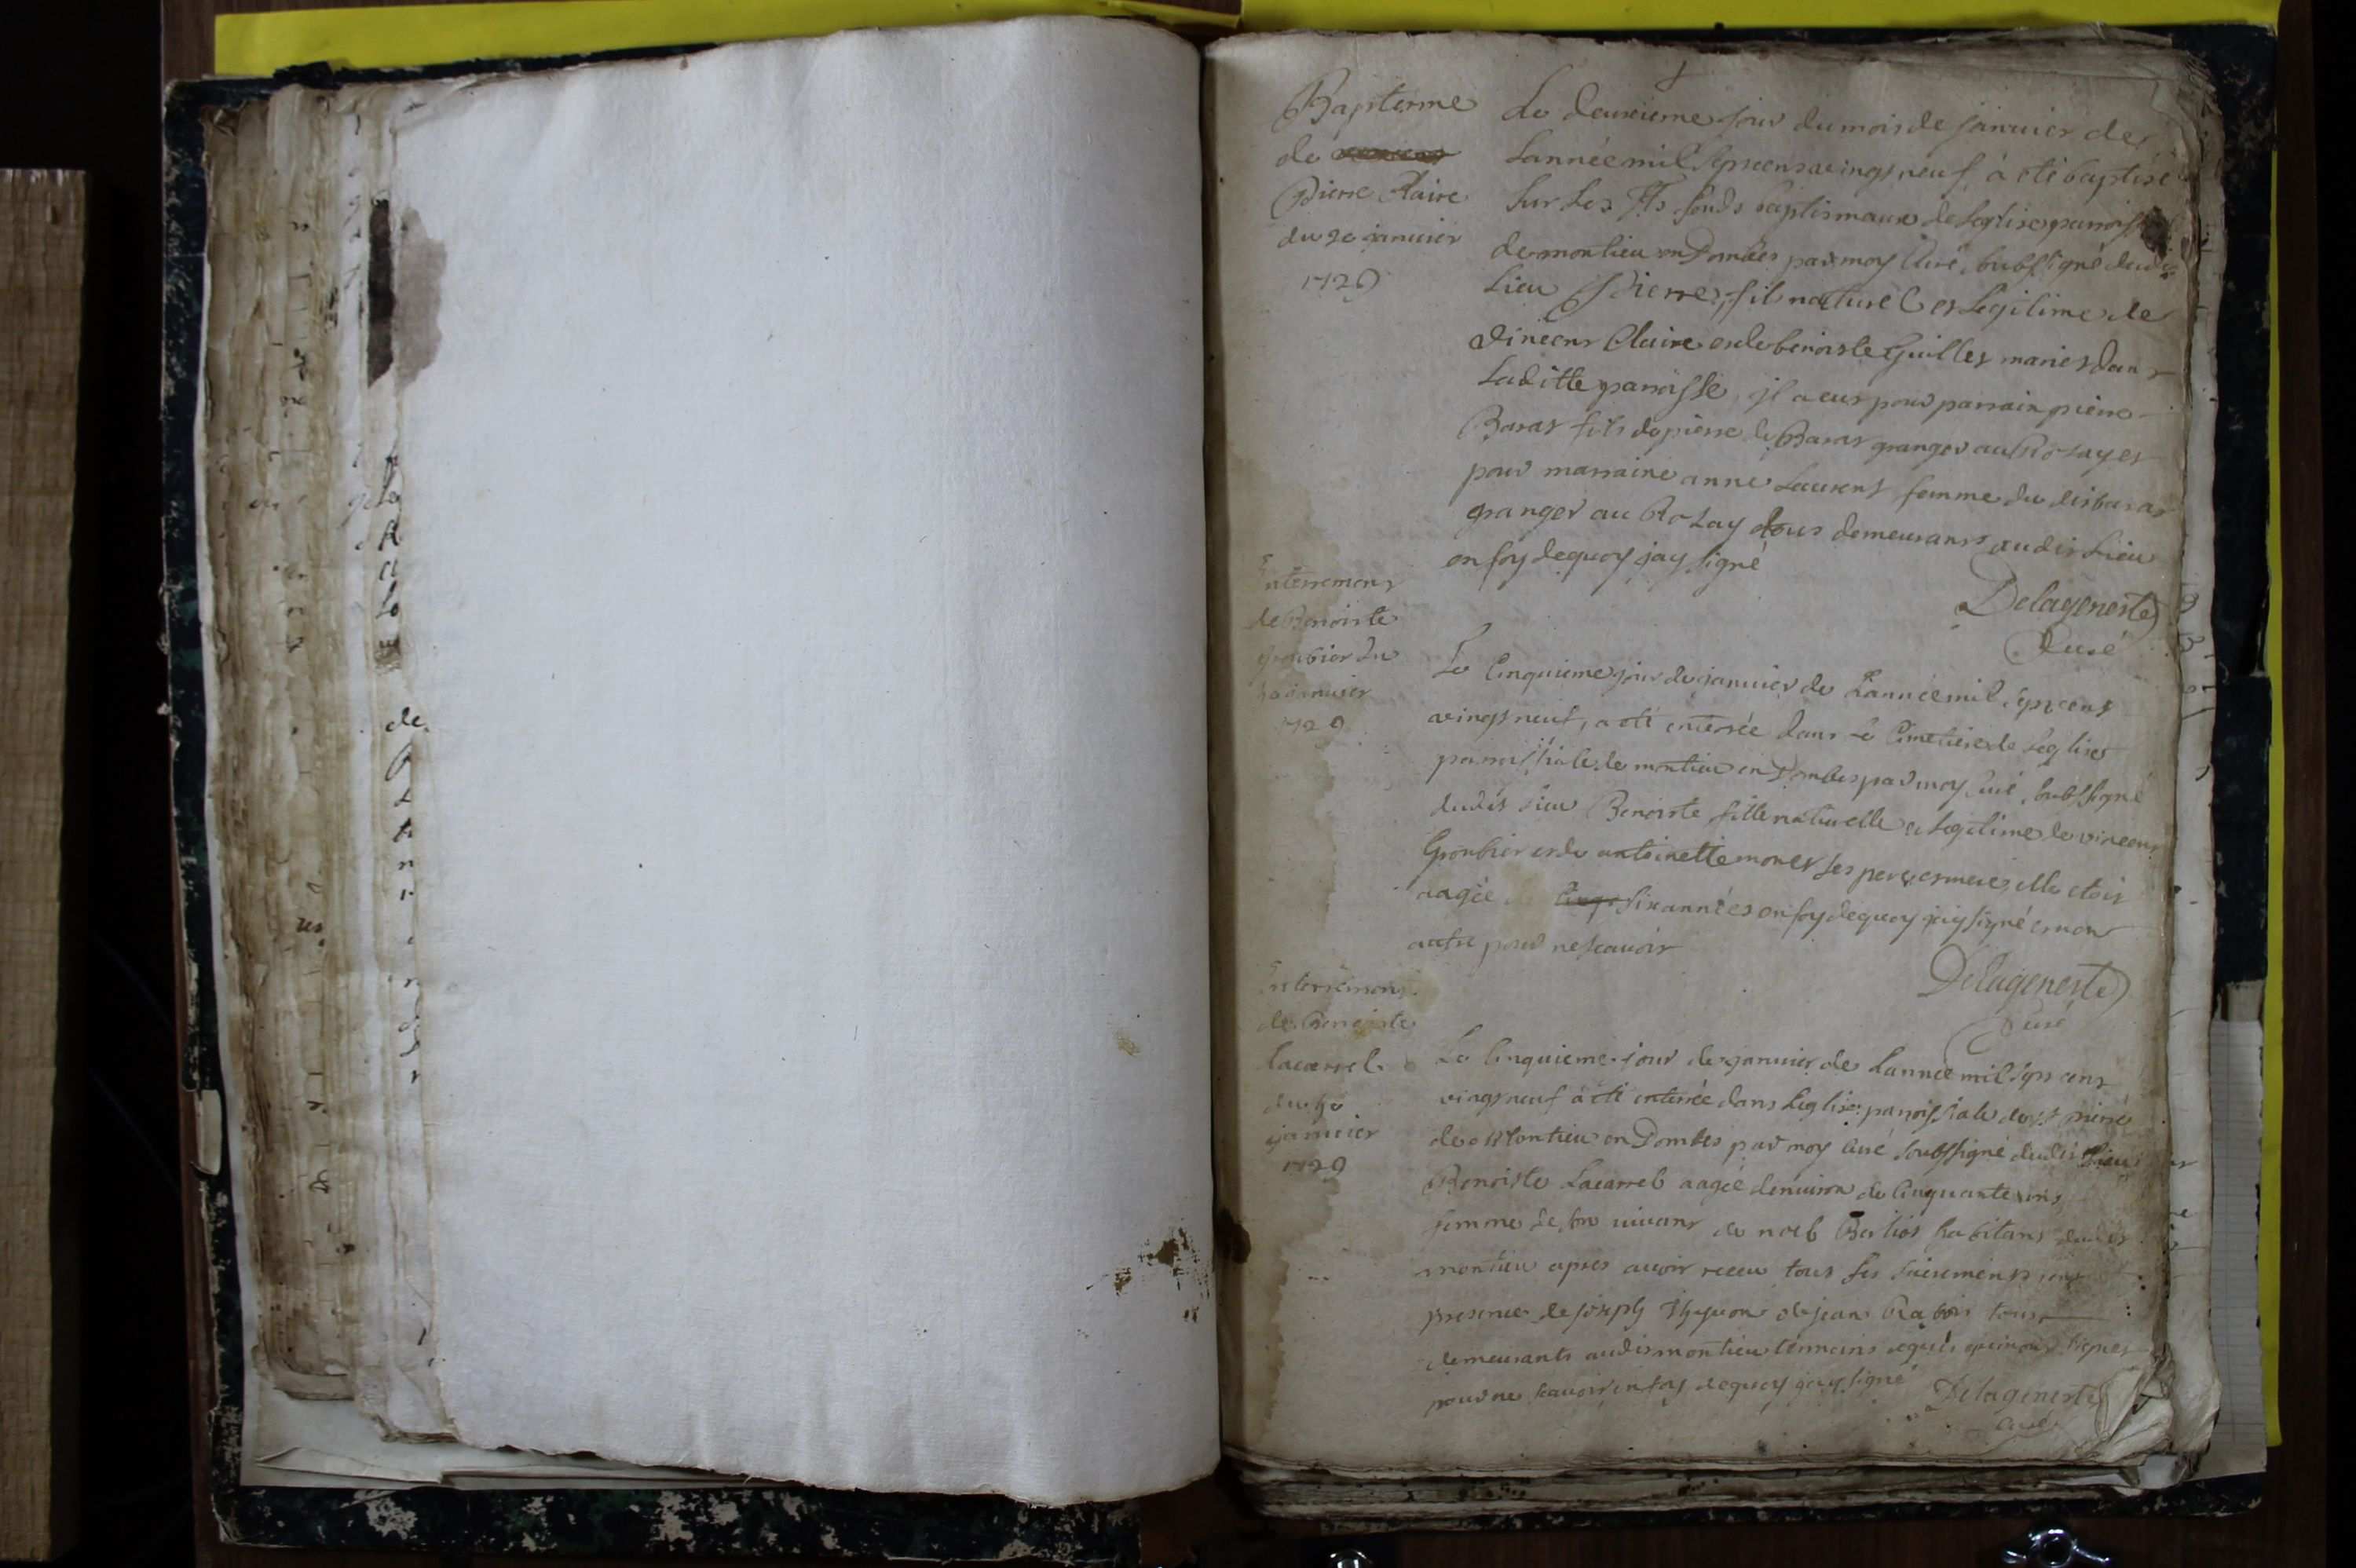 Baptesme
de
Pierre Claire
du 2e janvier
1729
Le deuxieme jour du mois de janvier de
Lannée mil sept cens vingt neuf à eté baptisé
sur Les fonds baptismaux de Leglise paroiss
de montieu en Dombes par moy Curé soubssigné dudit
Lieu Pierre fils naturel et Legitime de
vincent Claire et de benoiste Guilles mariés dans
Laditte paroisse, jl a eut pour parrain pierre
Baras fils de pierre Baras granger au Rosay et
pour marraine anne Laurent femme du dit baras
granger au Rosay tous demeurants audit Lieu
en foy dequoy jay signé
Delageneste
Curé
Enterrement
de Benoiste
Groubier du
5e janvier
1729
Le Cinquieme jour de janvier de Lannée mil sept cent
vingt neuf, a eté enterrée dans le Cimetiere de Leglise
paroissiale de montieu en Dombes par moy Curé soubssigné
dudit Lieu Benoiste fille naturelle et Legitime de vincent
Groubier et de antoinette monet ses pere et mere, elle etoit
aagée six années en foy dequoy jay signé et non
autre pour ne scavoir
Delageneste
Curé
Enterrement
de Benoiste
Lacarrel
du 5e
janvier
1729
Le Cinquieme jour de janvier de Lannée mil sept cent
vingt neuf à eté enterrée dans Leglise paroissiale de st pierre
de Montieu en Dombes par moy Curé soubssigné dudit Lieu
Benoiste Lacarrel aagée denviron de Cinquante ans
femme de son vivant de noel Berlios habitant dudit
montieu apres avoir receu tous ses sacrements
presence de joseph et de jean Rabois tous
demeurants audit montieu temoins signer
pour ne scavoir en foy dequoy jay signé
Delageneste
Curé